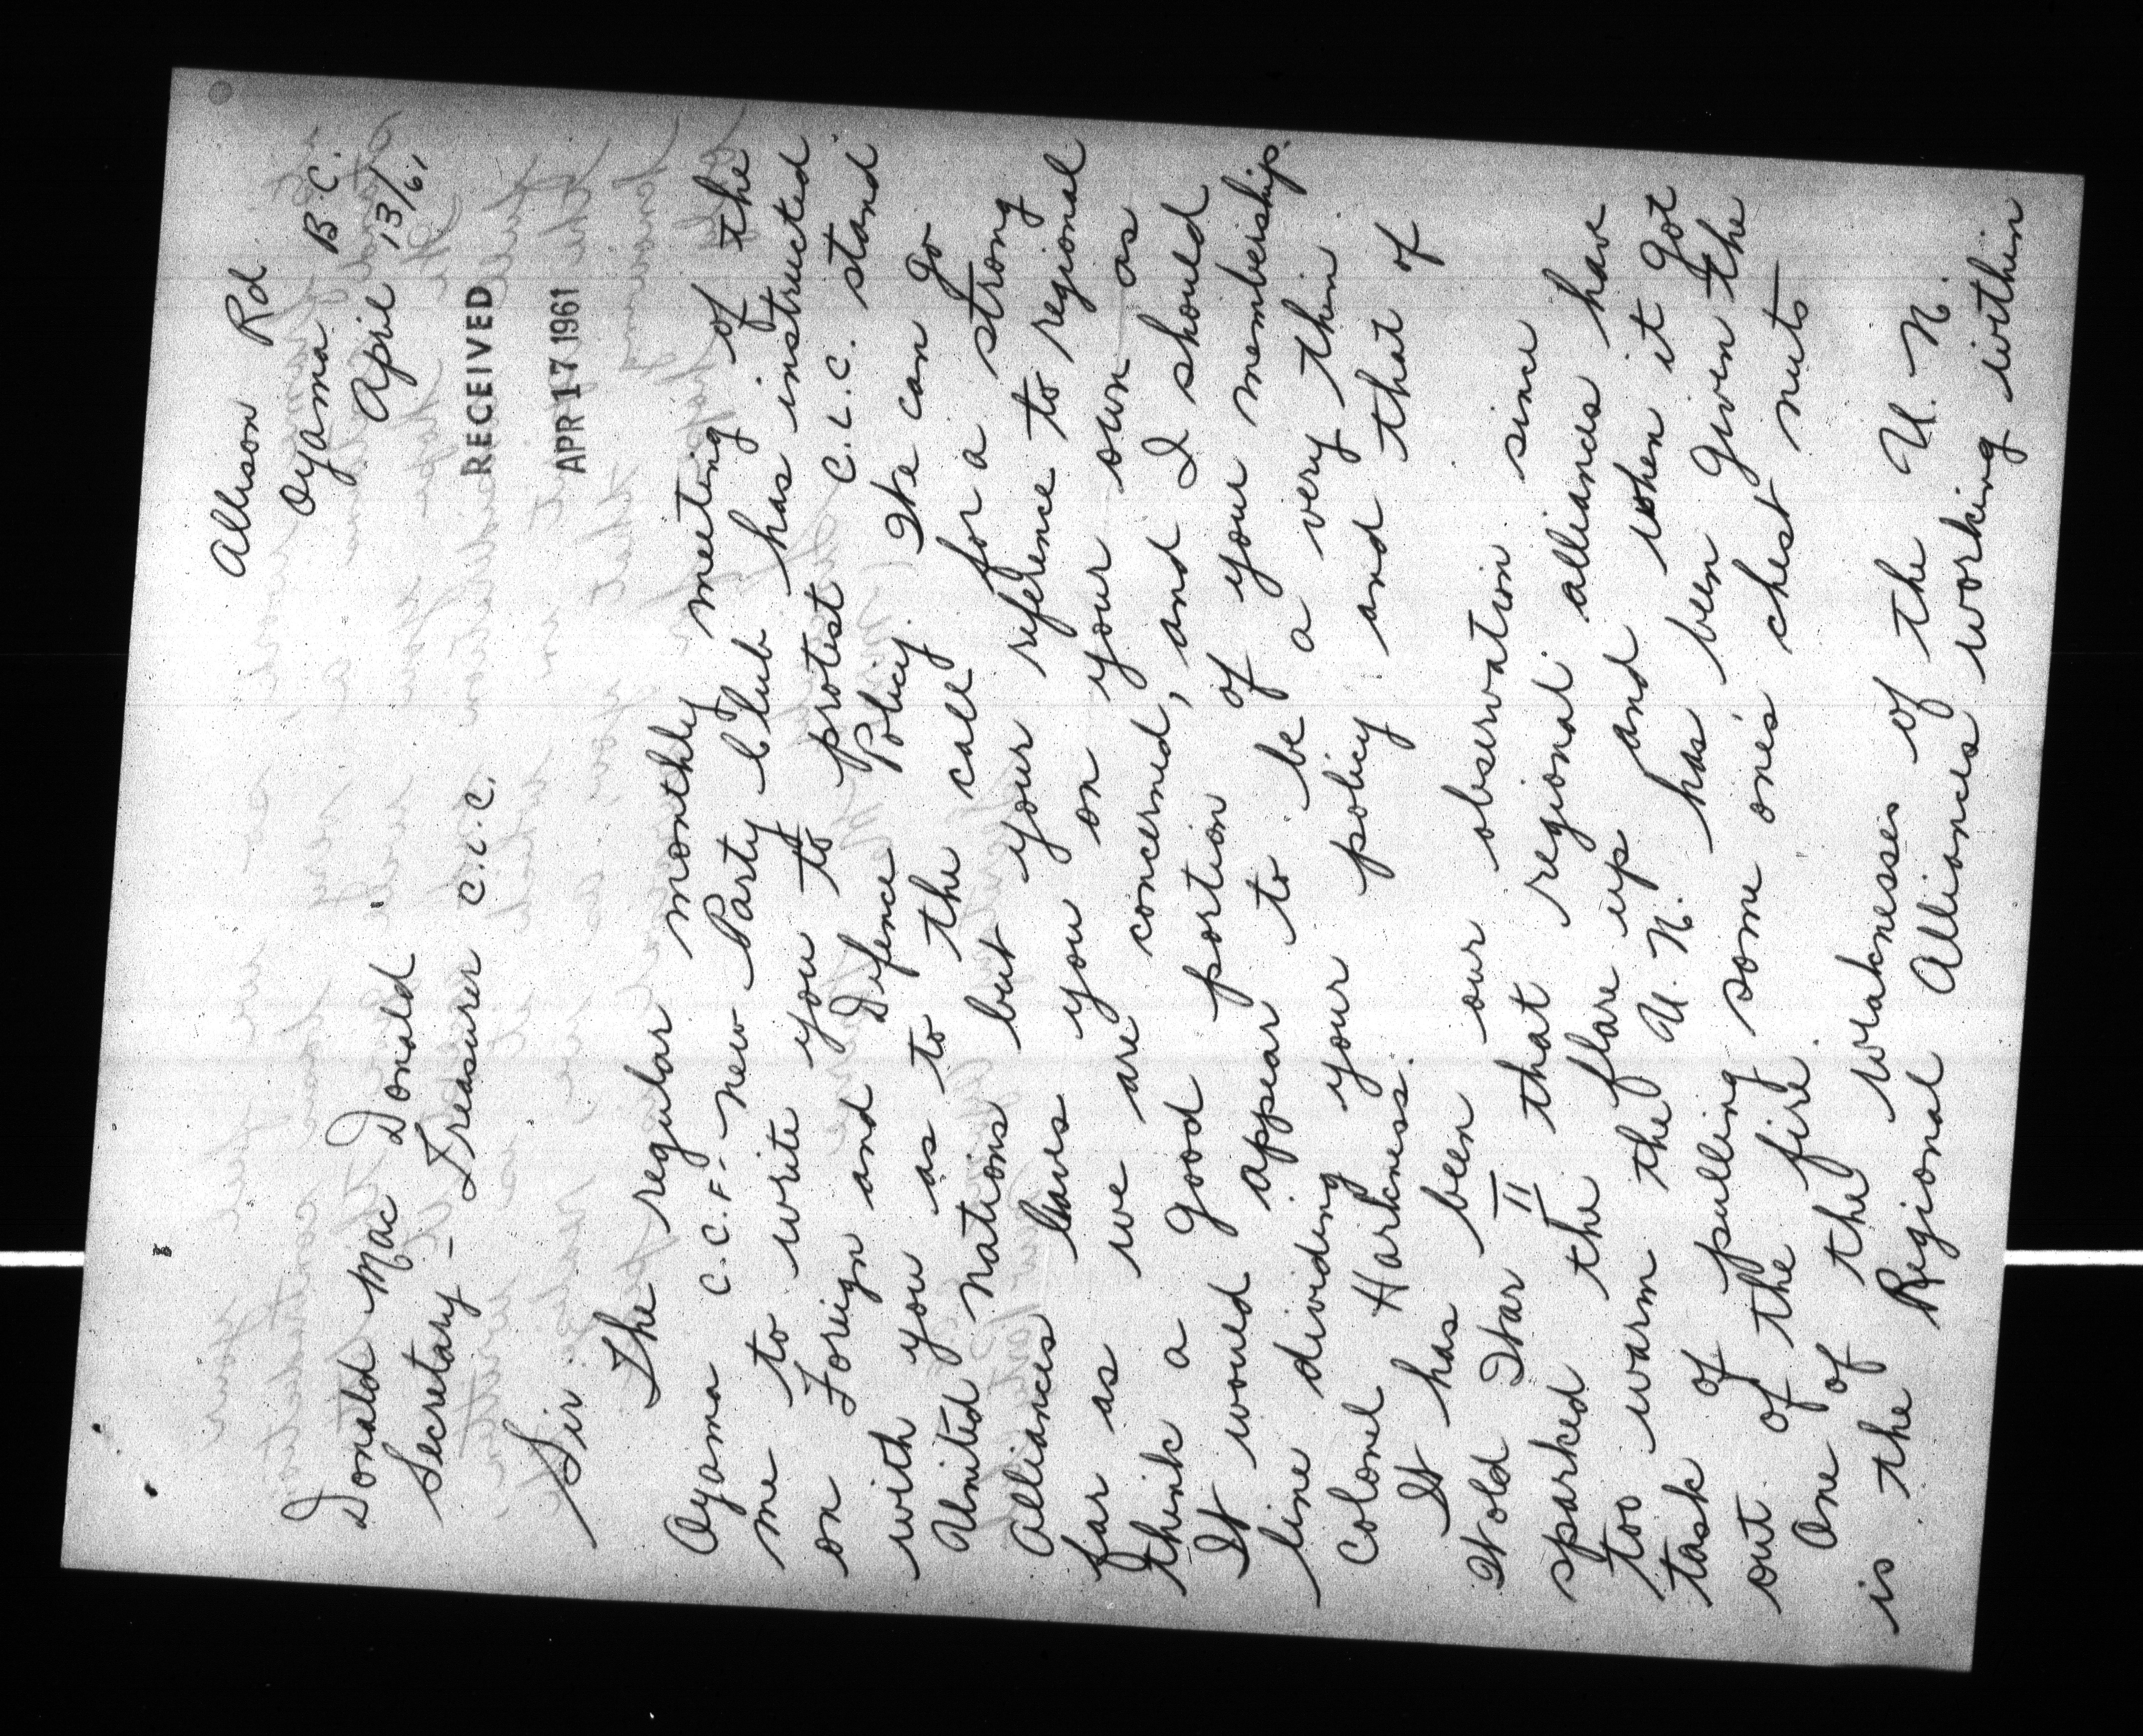 Allison Rd
Oyama B.C.
April 13/61
Donald Mac Donald
Secretary - Treasurer C.L.C.
RECEIVED
APR 17 1961
Sir
The regular monthly meeting of the
Oyama C.C.F. - New Party Club has instructed
me to write you to protest C.L.C. stand
on Foreign and Defence Policy. We can go
with you as to the call for a strong
United Nations but your reference to regional
Alliances leaves you on your own as
far as we are concerned, and I should
think a good portion of your membership.
It would appear to be a very thin
line dividing your policy and that of
Colonel Harkness.
It has been our observation since
World War II that regional alliances have
sparked the flare up and when it got
too warm the U.N. has been given the
task of pulling some one's chest nuts
out of the fire.
One of the weaknesses of the U.N.
is the Regional Alliances working within